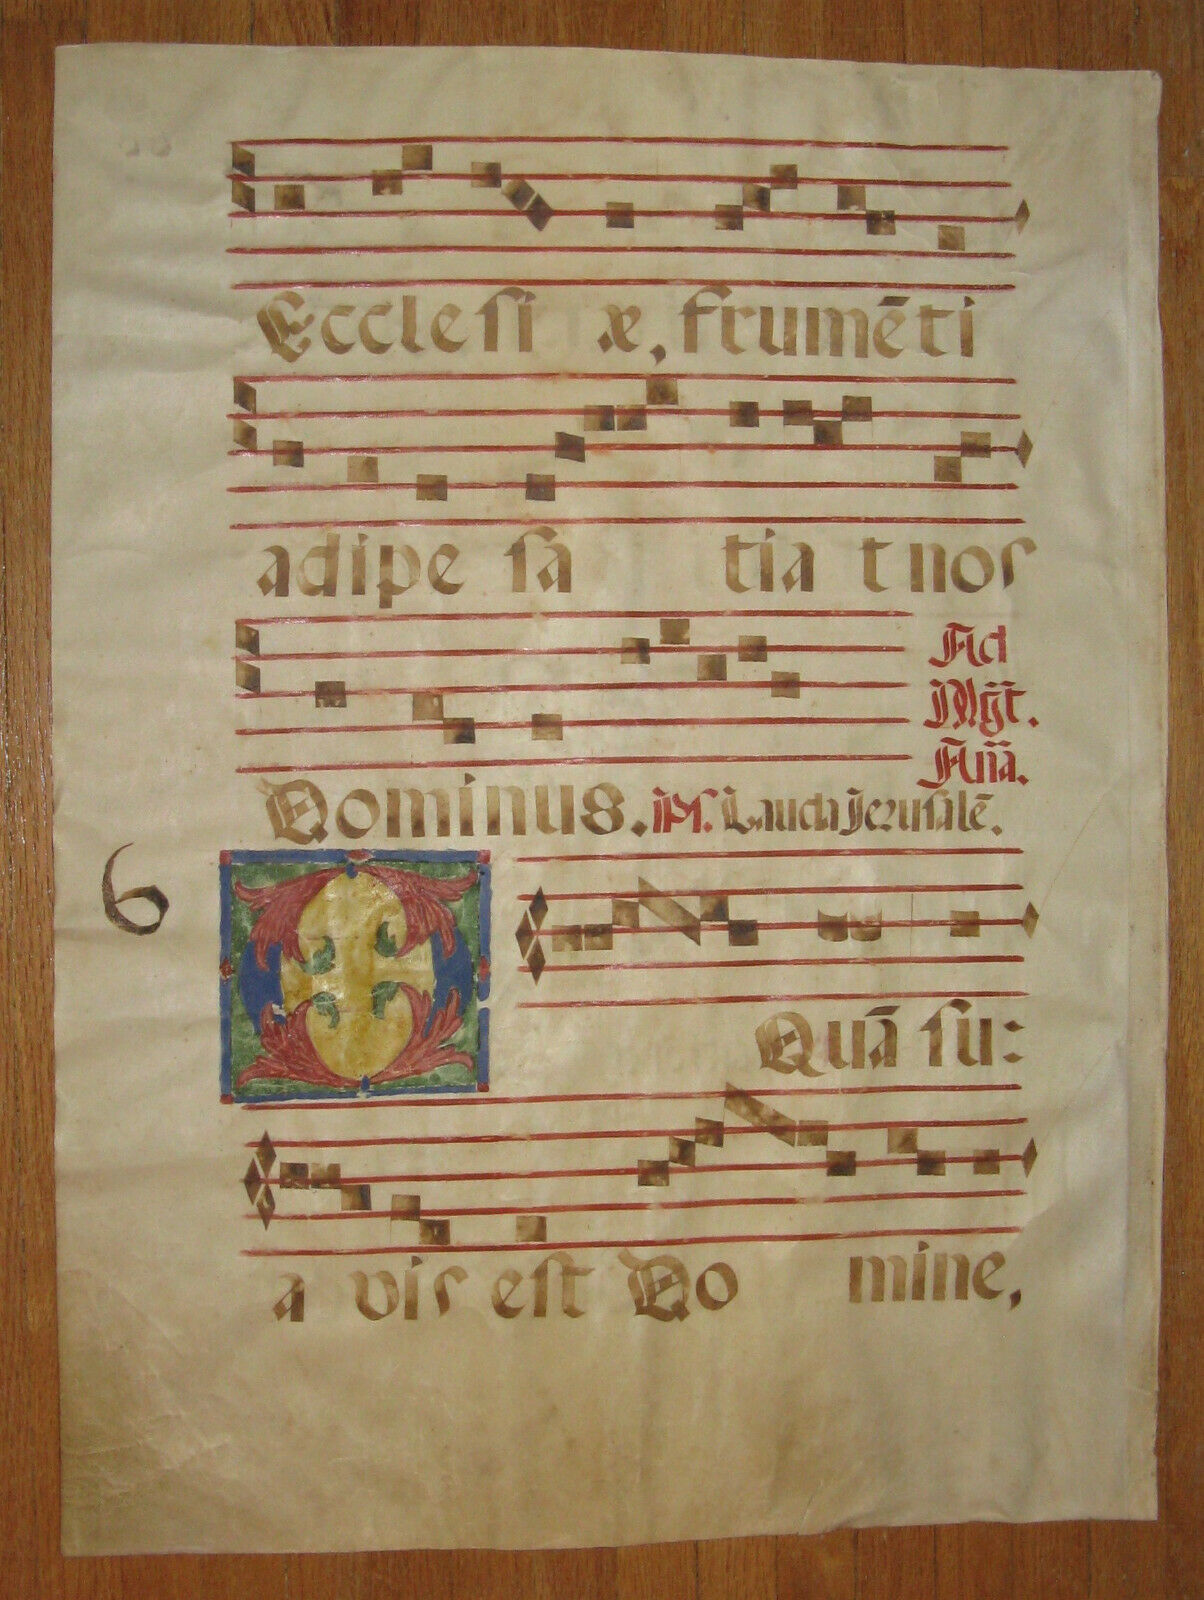 Ecclesi æ, frumēti
adipe sa tia t nos
Ad
Mgt.
Dominus. Ps. Lauda Jerusalē.
Aña.
6
O Quā su:
a vis est Do mine,